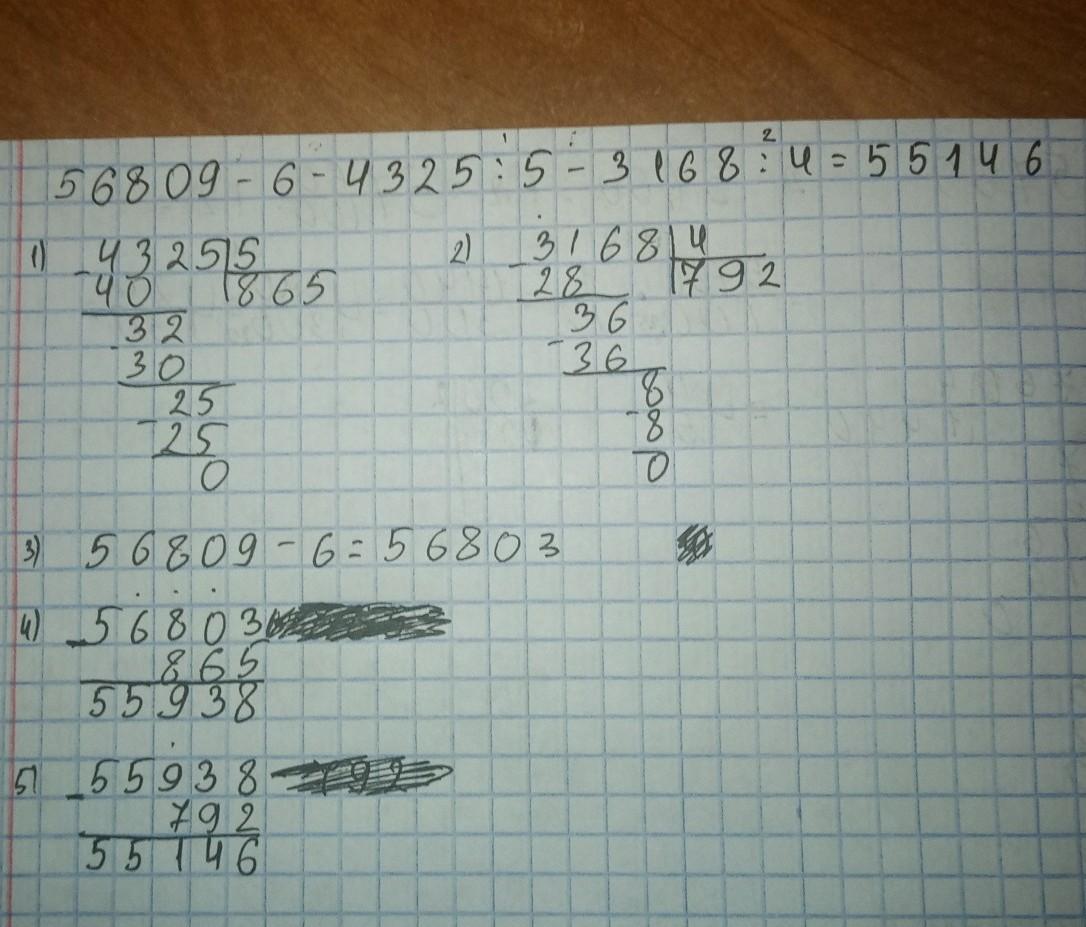 56809 - 6 - 4325 : 5 - 3168 : 4 = 55146
1 2
1) 4325 | 5
- 40 | 865
32
- 30
25
- 25
0
2) 3168 | 4
- 28 | 792
36
- 36
8
- 8
0
3) 56809 - 6 = 56803
4) - 56803
865
55938
5) - 55938
792
55146